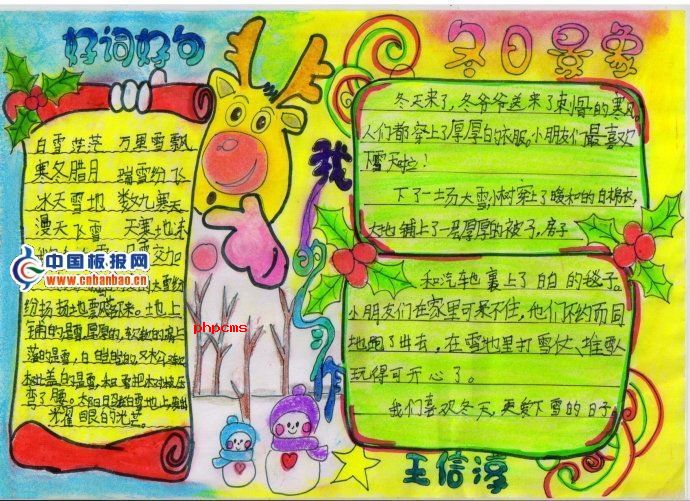 好词好句
白雪茫茫 万里雪飘
寒冬腊月 瑞雪纷飞
冰天雪地 数九寒天
漫天飞雪 天寒地冻
中国板报网
www.cnbanbao.cn
大雪纷
纷扬扬地飘落下来。地上
铺的是雪，厚厚的，软软的，
落的是雪，白皑皑的，
盖的是雪，
弯了腰。太阳
耀眼的光芒。
我的习作
phpcms
冬日景象
冬天来了，冬爷爷送来了刺骨的寒风。
人们都穿上了厚厚白衣服。小朋友们最喜欢
下雪天啦！
下了一场大雪，小树穿上了暖和的白棉衣，
大地铺上了一层厚厚的被子，房子
和汽车也裹上了白白的毯子。
小朋友们在家里可呆不住，他们不约而同
地跑了出去，在雪地里打雪仗、堆雪人
玩得可开心了。
我们喜欢冬天，更爱下雪的日子。
王信淳